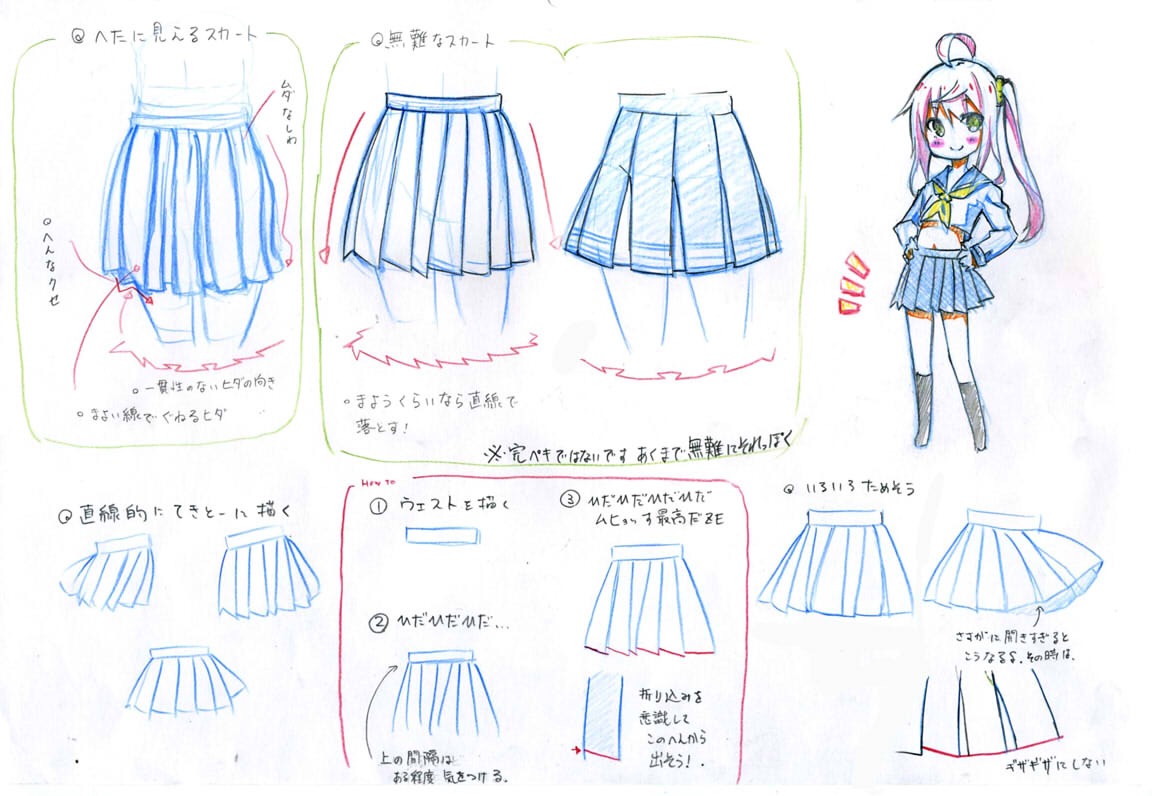 へたに見えるスカート
ムダなしわ
へんなクセ
一貫性のないヒダの向き
まよい線でぐねるヒダ
無難なスカート
まようくらいなら直線で
落とす!
※完ペキではないです あくまで無難にそれっぽく
直線的にてきとーに描く
HOW TO
① ウエストを描く
② ひだひだひだ...
上の間隔は
ある程度気をつける。
③ ひだひだひだひだ
ムヒョっす最高だZE
折り込みを
意識して
このへんから
出そう!
いろいろためそう
さすがに開きすぎると
こうなるよ。その時は、
ギザギザにしない